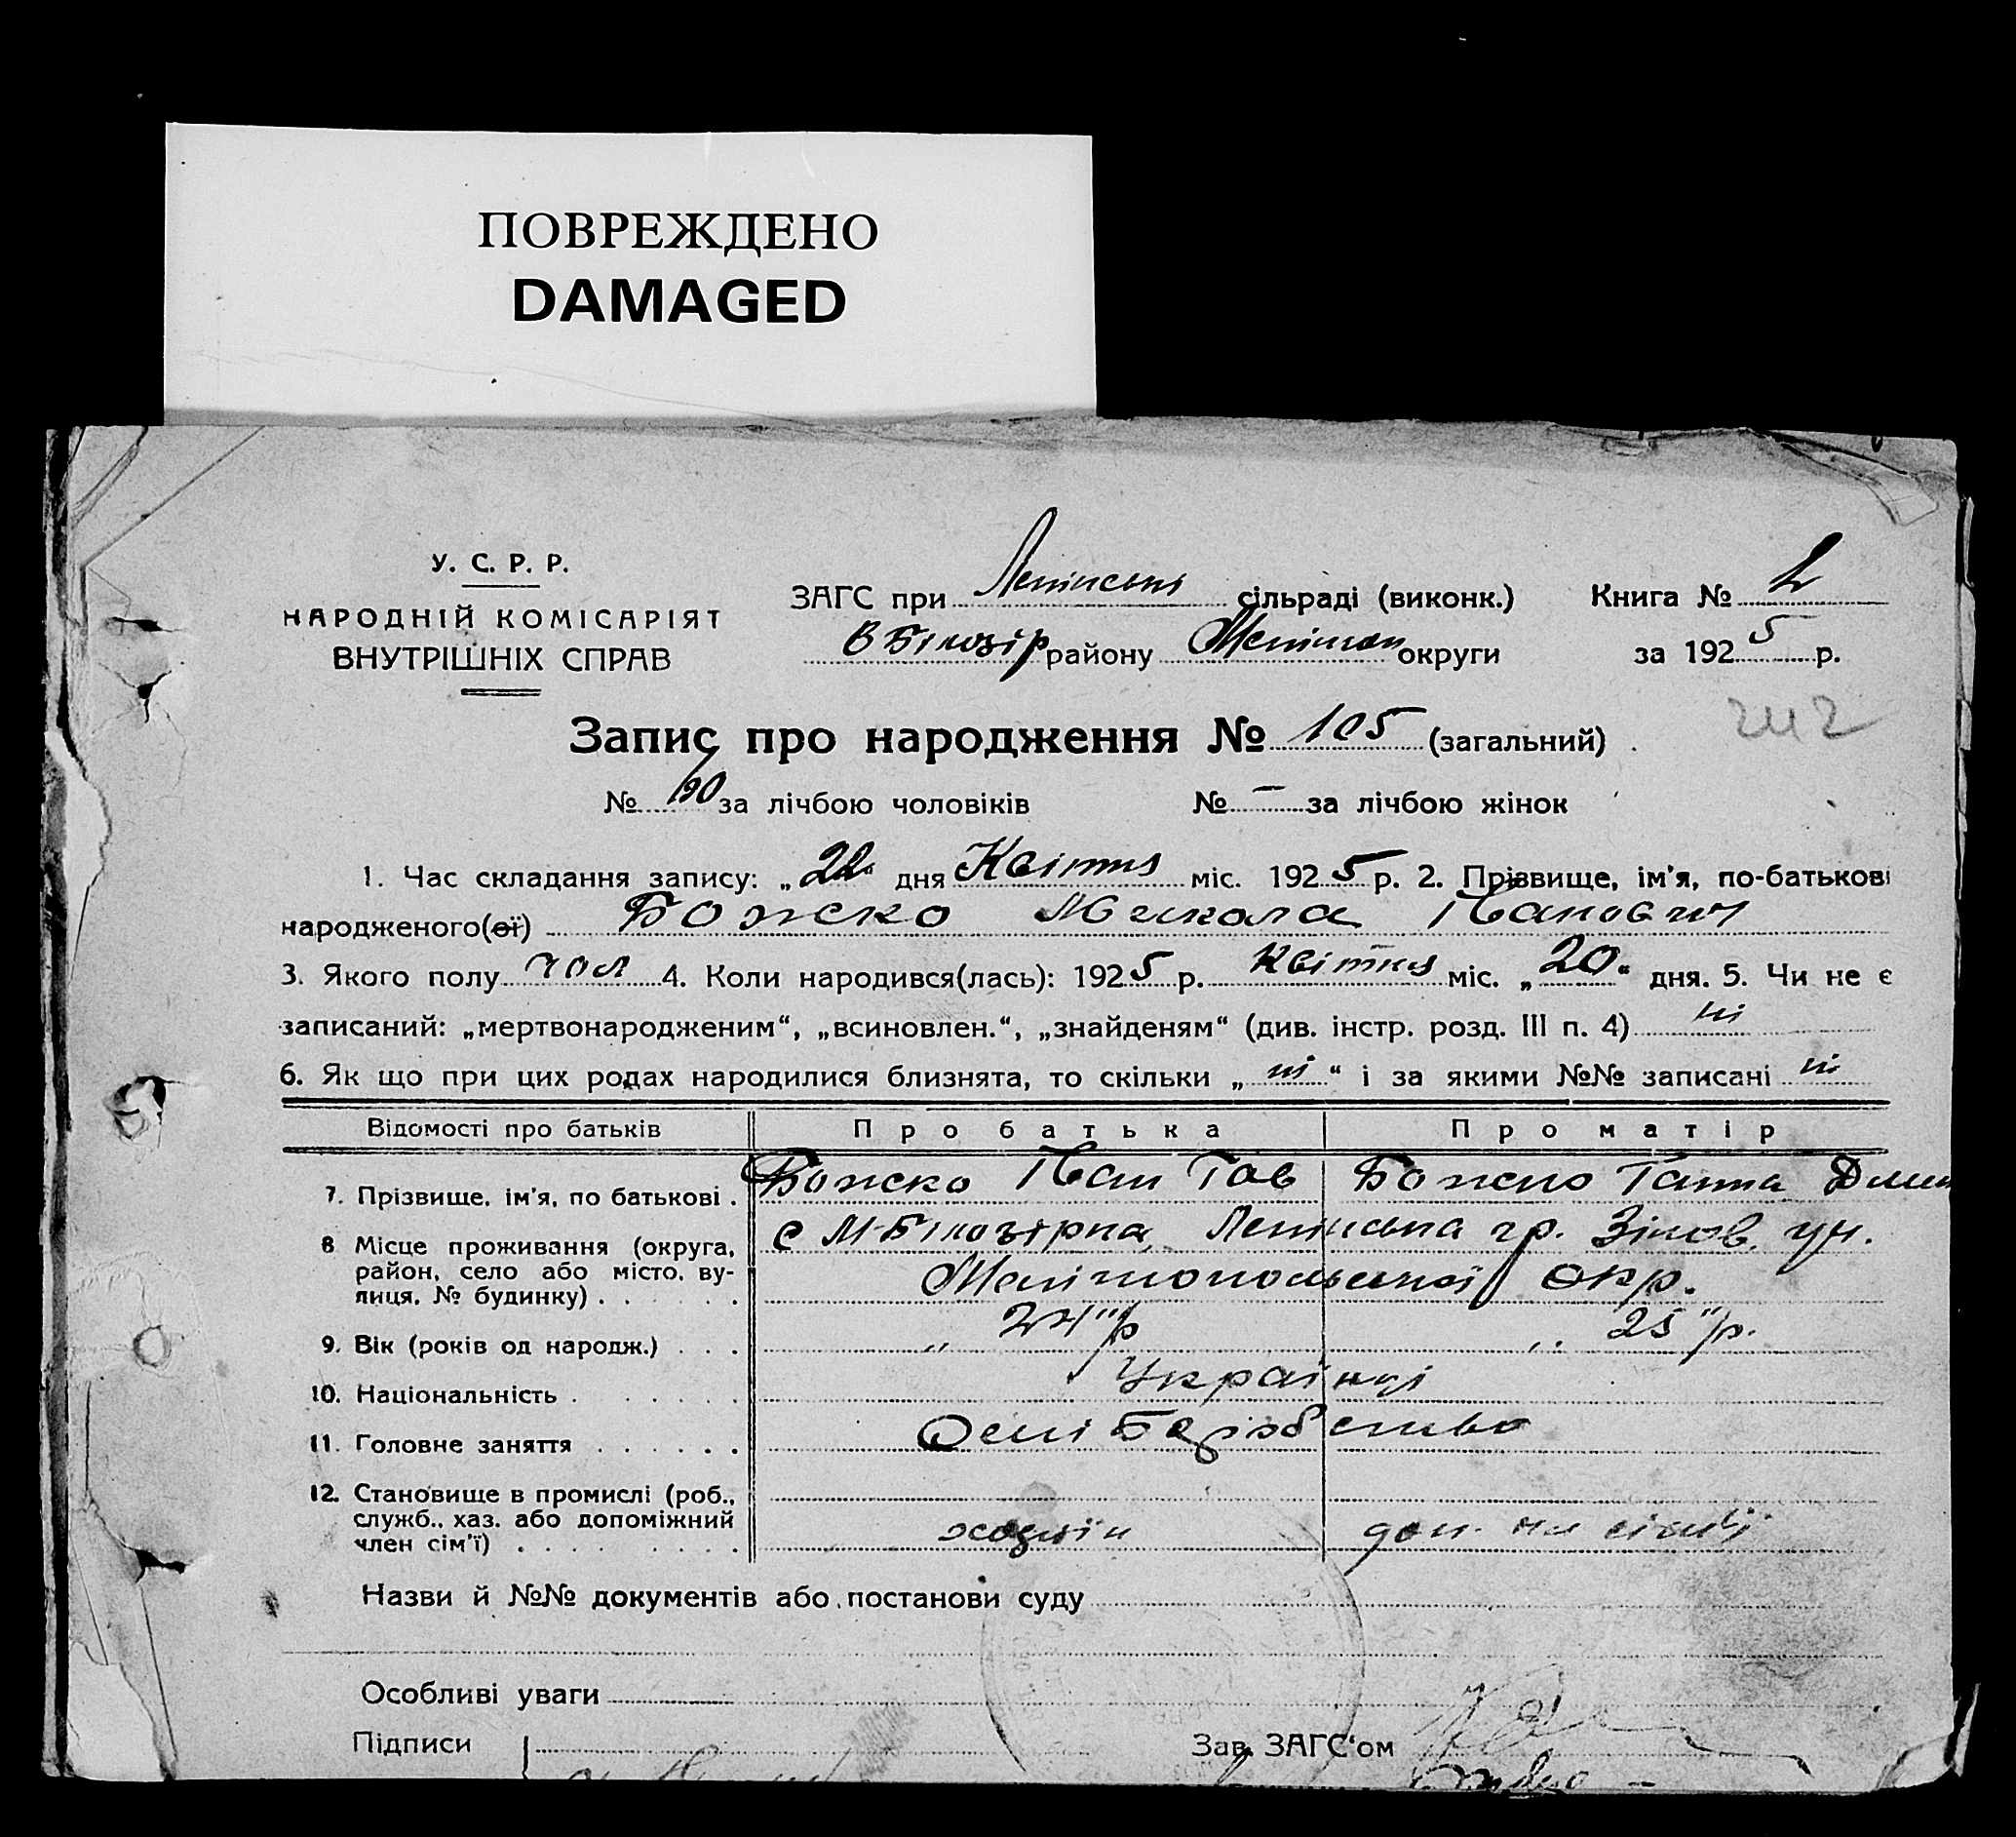 ПОВРЕЖДЕНО
DAMAGED
У. С. Р. Р.
НАРОДНІЙ КОМІСАРІЯТ
ВНУТРІШНІХ СПРАВ
ЗАГС при Ленінські сільраді (виконк.) Книга № 2
В Білозір району Мелітоп округи за 1925 р.
Запис про народження № 105 (загальний)
242
№ за лічбою чоловіків № — за лічбою жінок
1. Час складання запису: „22“ дня Квітня міс. 1925 р. 2. Прізвище, ім'я, по-батькові
народженого(ої) Божко Микола Іванович
3. Якого полу чол 4. Коли народився(лась): 1925 р. Квітня міс. „20“ дня. 5. Чи не є
записаний: „мертвонародженим“, „всиновлен.“, „знайденям“ (див. інстр. розд. III п. 4) ні
6. Як що при цих родах народилися близнята, то скільки „ ні “ і за якими №№ записані ні
Відомості про батьків Про батька Про матір
7. Прізвище, ім'я, по батькові . Божко Іван Гав Божко Ганна Дми
8 Місце проживання (округа, район, село або місто, вулиця, № будинку) . . . . . . с М-Білозірка, Ленінська гр. ун.
Мелітопольської Окр.
9. Вік (років од народж.) . . . „ 24 "/р „ 25 "/р.
10. Національність . . . . . . Українці
11. Головне заняття . . . . . .
12. Становище в промислі (роб., служб., хаз. або допоміжний член сім'ї) . . . . . . . . хозяїн доп. чл сім'ї
Назви й №№ документів або постанови суду
Особливі уваги
Підписи Зав. ЗАГС'ом